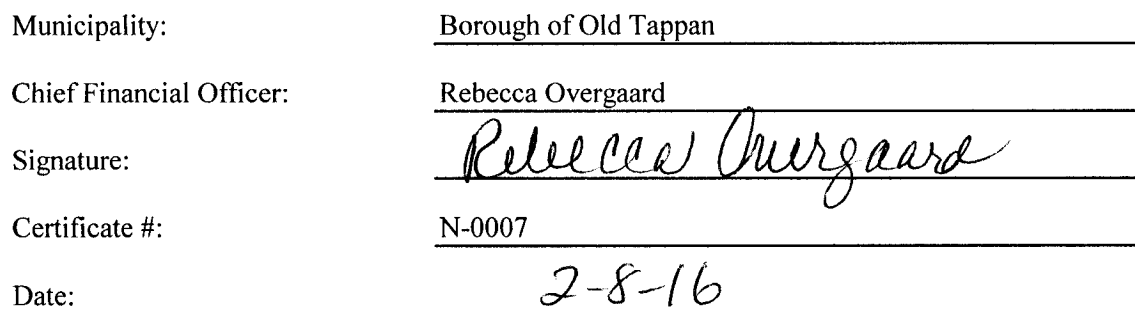 Municipality: Borough of Old Tappan
Chief Financial Officer: Rebecca Overgaard
Signature: Rebecca Overgaard
Certificate #: N-0007
Date: 2-8-16